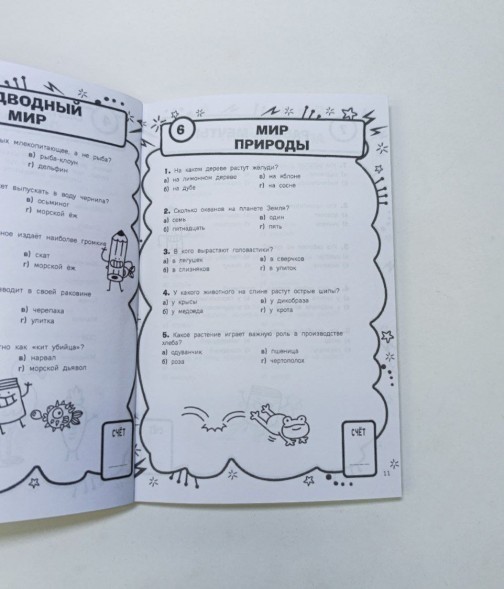 ДВОДНЫЙ
МИР
млекопитающее, а не рыба?
в) рыба-клоун
г) дельфин
выпускать в воду чернила?
в) осьминог
г) морской ёж
издаёт наиболее громкие
в) скат
г) морской ёж
в своей раковине
в) черепаха
г) улитка
как «кит убийца»?
в) нарвал
г) морской дьявол
6
МИР
ПРИРОДЫ
1. На каком дереве растут жёлуди?
а) на лимонном дереве в) на яблоне
б) на дубе г) на сосне
2. Сколько океанов на планете Земля?
а) семь в) один
б) пятнадцать г) пять
3. В кого вырастают головастики?
а) в лягушек в) в сверчков
б) в слизняков г) в улиток
4. У какого животного на спине растут острые шипы?
а) у крысы в) у дикобраза
б) у медведя г) у крота
5. Какое растение играет важную роль в производстве
хлеба?
а) одуванчик в) пшеница
б) роза г) чертополох
СЧЁТ
СЧЁТ
11